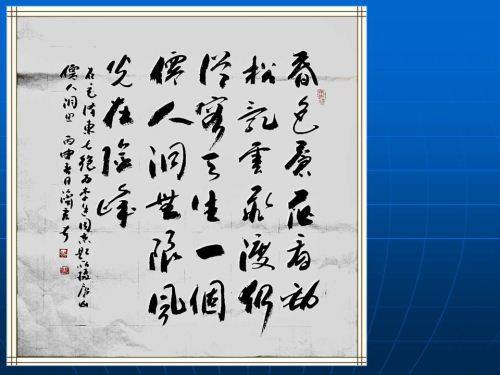 暮色蒼茫看勁
松亂雲飛渡仍
從容天生一個
僊人洞無限風
光在險峰
毛澤東七絕為李進同志題所攝廬山
僊人洞照 丙申春日